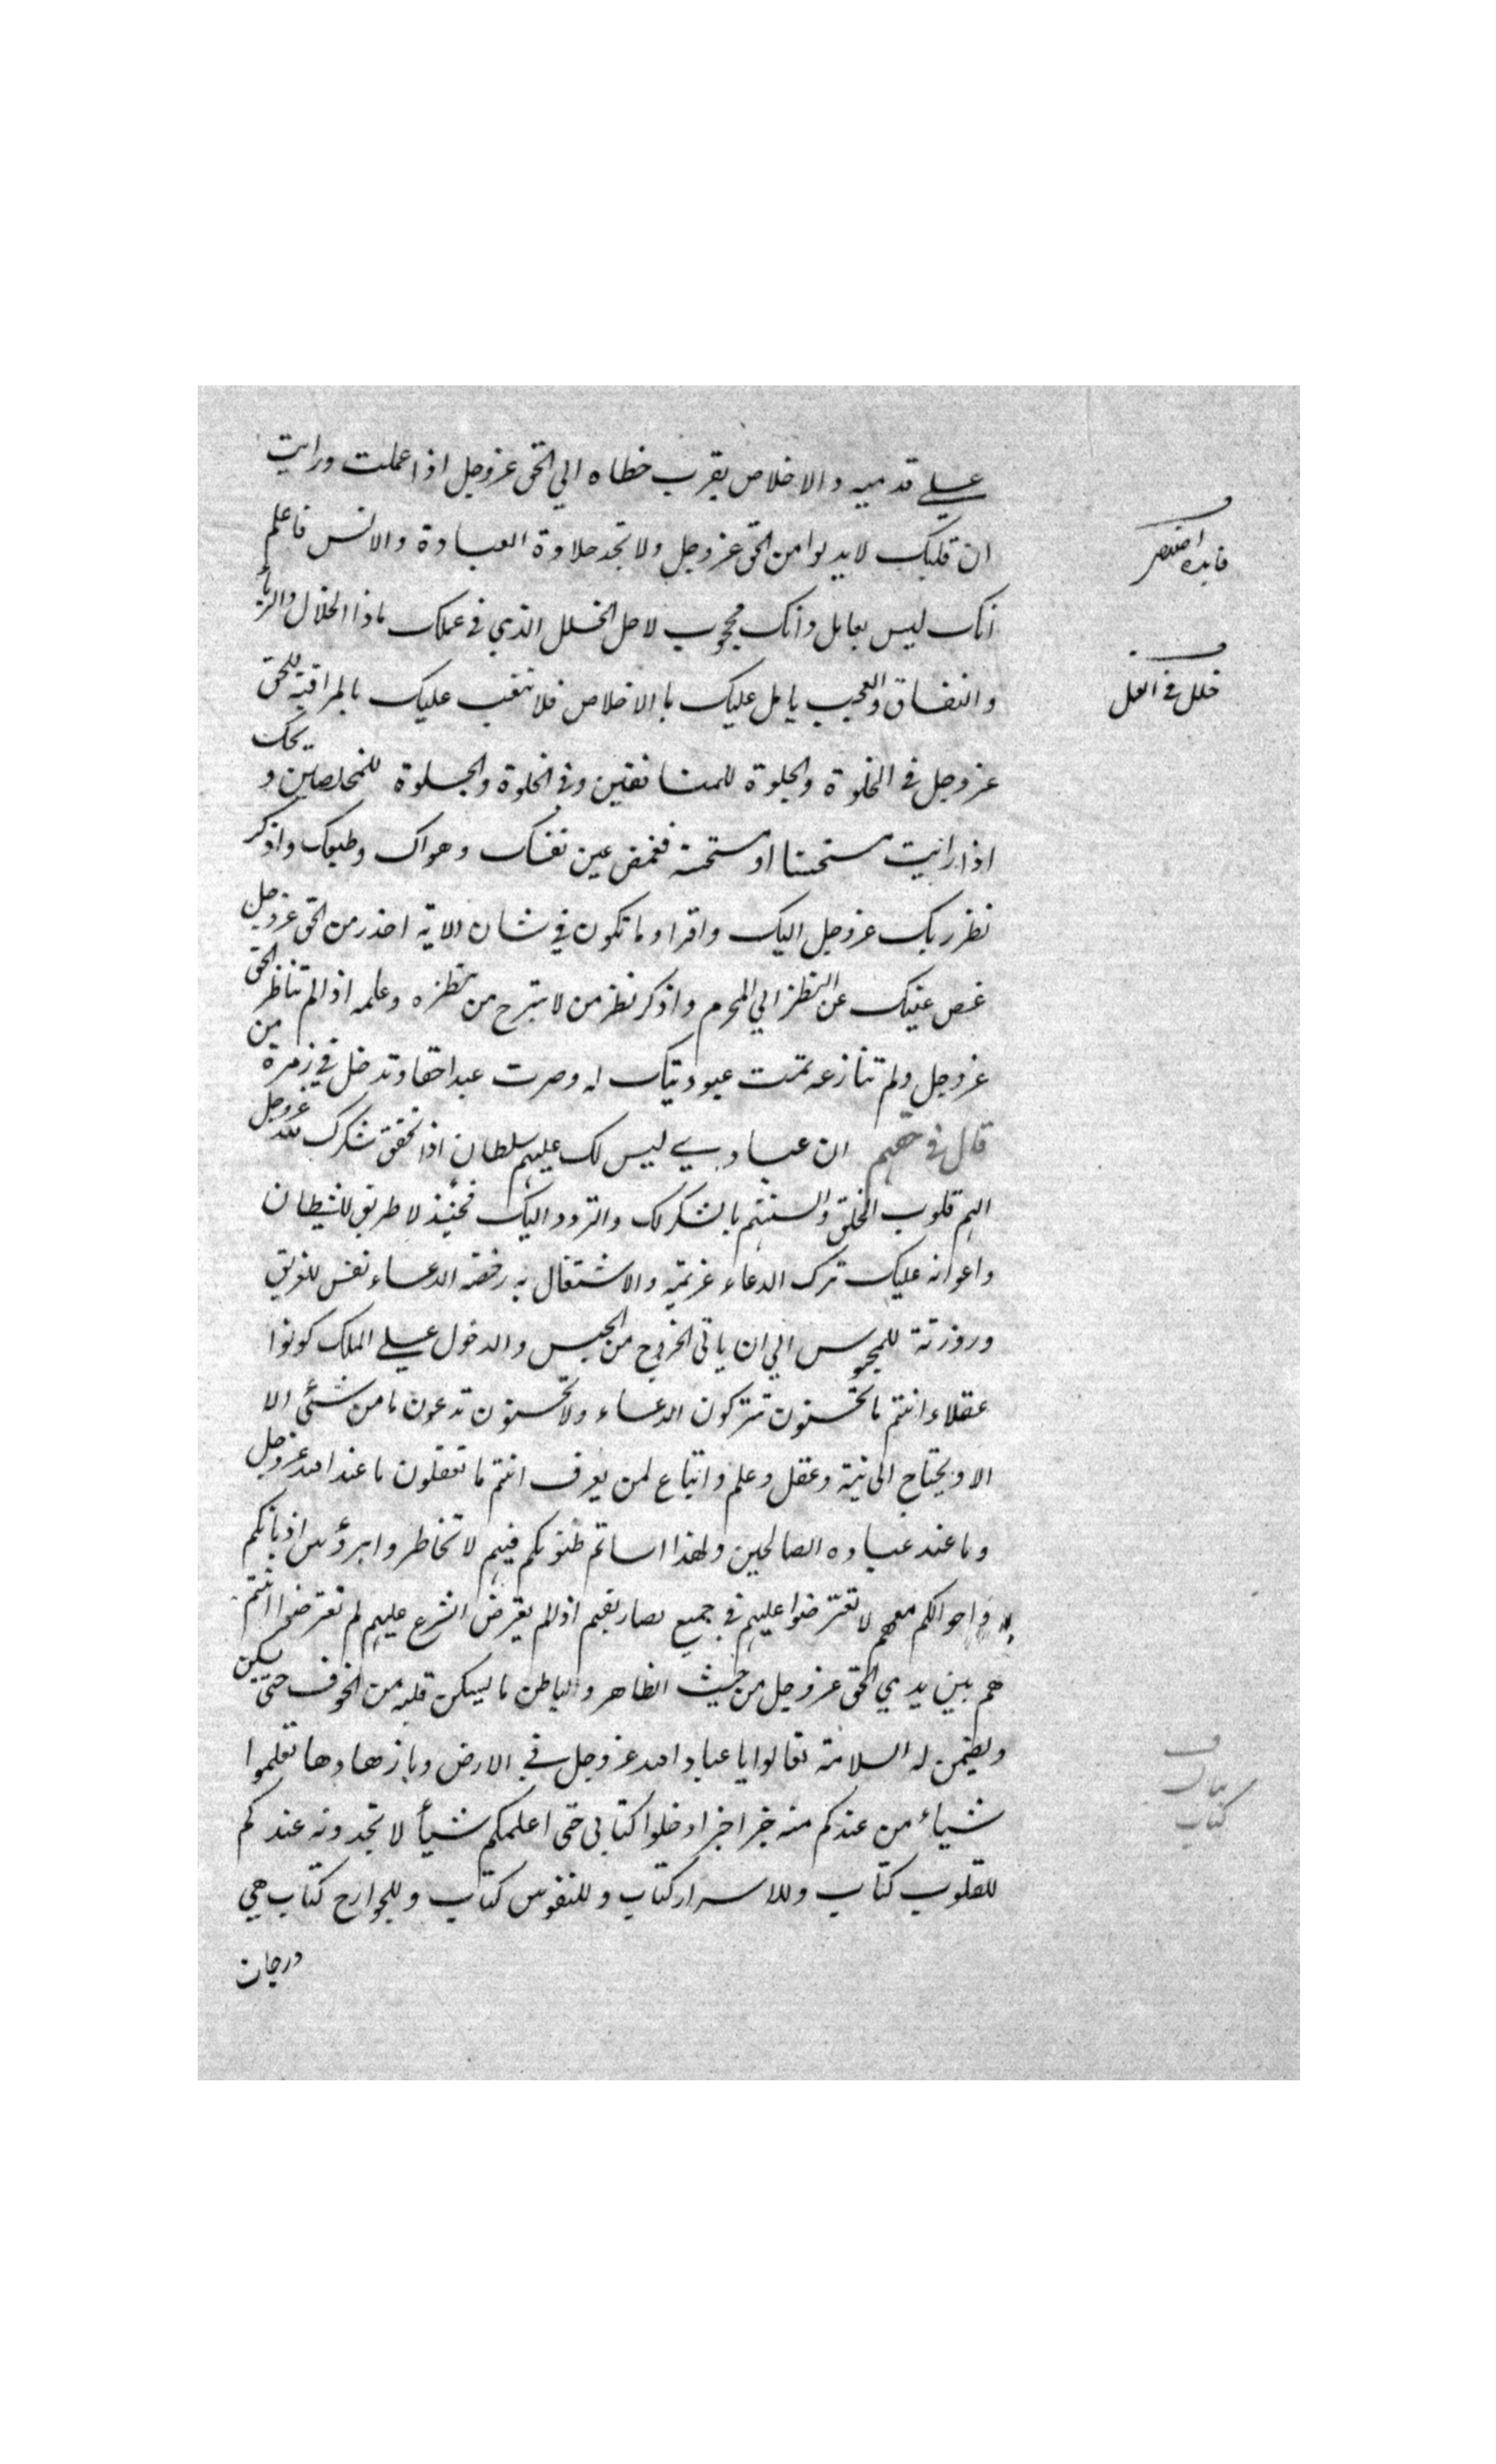 علي قدميه والاخلاص يقرب خطاه الي الحق عزوجل اذا عملت ورايت
ان قلبك لا يدنوا من الحق عزوجل ولا تجد حلاوة العبادة والانس فاعلم
انك ليس بعامل وانك محجوب لاجل الخلل الذي في عملك ماذا الخلال والريأ
والنفاق والعجب يا مل عليك با الاخلاص فلا تتعب عليك بالمراقبة للحق
عزوجل في الخلوة والجلوة للمنافقين وفي الخلوة والجلوة للمخلصين ويحك
اذا رايت مستحسنا او مستحسنة فغمض عين نفسك وهواك وطبعك واذكر
نظر ربك عزوجل اليك واقرا وما تكون في شان الاية احذر من الحق عزوجل
غض عينك عن النظر الي المحرم واذكر نظر من لا تبرح من نظره وعلمه اذا لم تناظر الحق
عزوجل ولم تنازعه تمت عبوديتك له وصرت عبدا حقا وتدخل في زمرة من
قال في حقهم ان عبادي ليس لك عليهم سلطان اذا تحقق شكرك لله عزوجل
الهم قلوب الخلق والسنتهم بالشكر لك والتودد اليك فحينئذ لا طريق للشيطان
واعوانه عليك ترك الدعاء عزيمة والاشتغال به رخصة الدعاء نفس للغريق
وروزنة للمحبوس الي ان ياتي الخروج من الحبس والدخول علي الملك كونوا
عقلاء انتم ما تحسنون تتركون الدعاء ولا تحسنون تدعون ما من شئ الا
الا ويحتاج الي نية وعقل وعلم واتباع لمن يعرف انتم ما تعقلون ما عند الله عزوجل
وما عند عباده الصالحين ولهذا اساتم ظنونكم فيهم لا تخاطروا برؤس اديانكم
واحوالكم معهم لا تعترضوا عليهم في جميع تصاريفهم اذا لم يعترض الشرع عليهم لم تعترضوا انتم
هم بين يدي الحق عزوجل من حيث الظاهر والباطن ما يسكن قلبه من الخوف حتى يسكن
ويضمن له السلامة تعالوا يا عباد الله عزوجل في الارض ويا زهادها تعلموا
شياء من عندكم منه خبر اخبر ادخلوا كتابي حتى اعلمكم شيأ لا تجدونه عندكم
للقلوب كتاب وللاسرار كتاب وللنفوس كتاب وللجوارح كتاب هي
درجات
فايده
خلل في العمل
كتاب